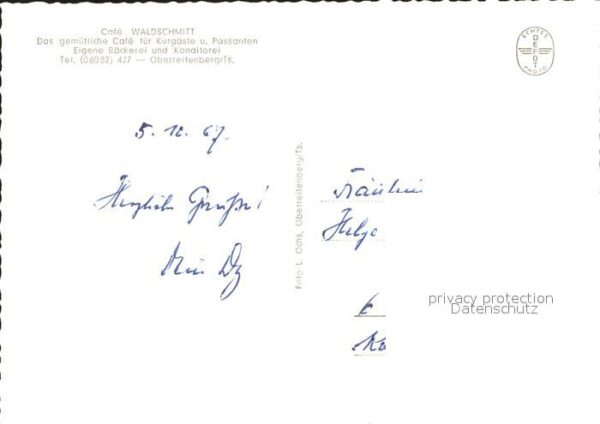 Café WALDSCHMITT
Das gemütliche Café für Kurgäste u. Passanten
Eigene Bäckerei und Konditorei
Tel. (06082) 427 — Oberreifenberg/Ts.
ECHTES
DEFOT
PHOTO
5. 12. 67.
Herzliche Grüße!
Foto L. Odis, Oberreifenberg/Ts.
Fräulein
Helga
privacy protection
Datenschutz